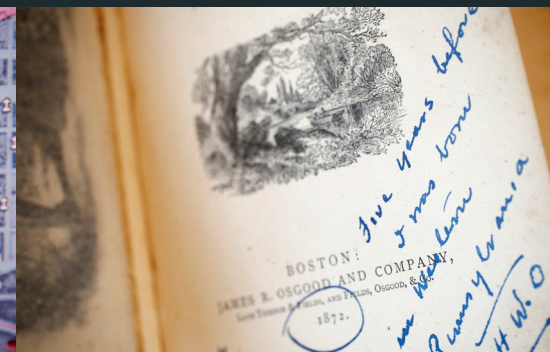 BOSTON:
JAMES R. OSGOOD AND COMPANY,
LATE TICKNOR & FIELDS, AND FIELDS, OSGOOD, & CO.
1872.
Five years before
I was born
in Western
Pennsylvania
H. W. O